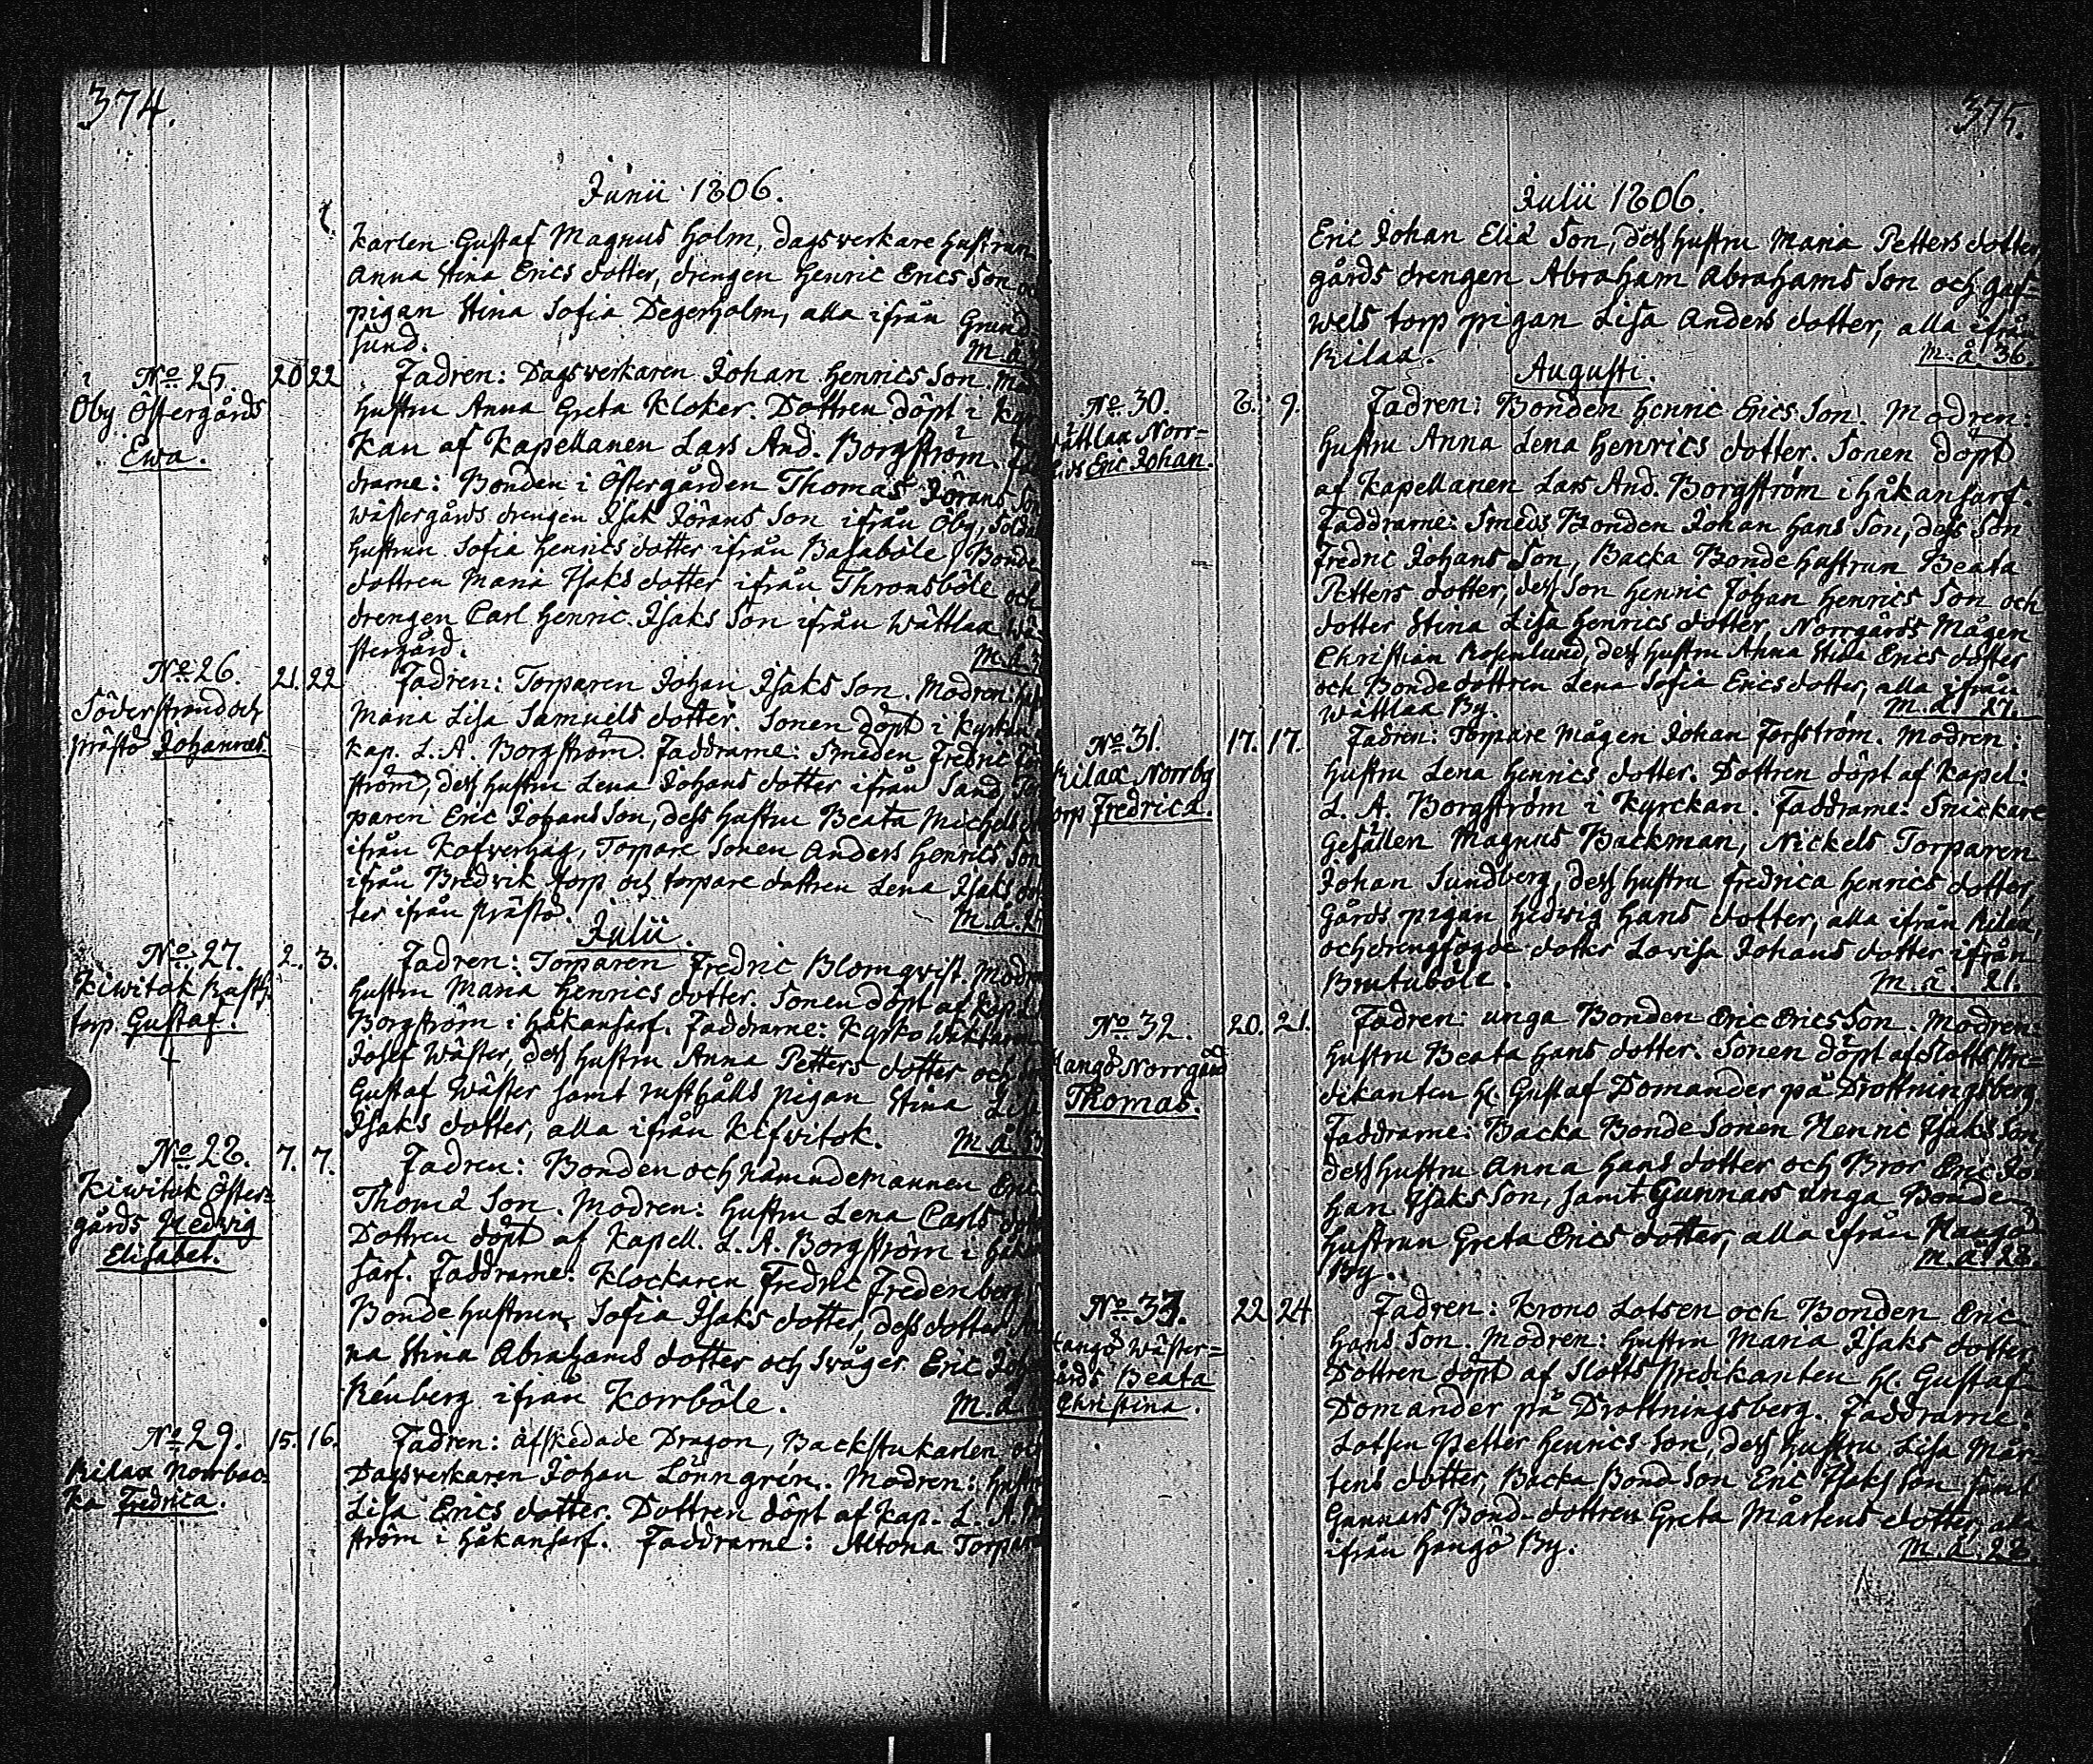 374.
Junii 1806.
Karlen Gustaf Magnus Holm, dagsverkare hustrun
Anna Stina Erics dotter, drengen Henric Erics Son
pigan Stina Sofia Degerholm, alla ifrån Grund
sund.
m.å.
No 25. 20 22 Fadren: Dagsverkaren Johan Henrics Son.
Öby Östergårds
Ewa.
hustru Anna Greta Kloker. Dottren döpt i
kan af Kapellanen Lars And. Borgström.
drarne: Bonden i Östergården Thomas Jörans Son
Wästergårds drengen Isak Jörans Son ifrån Öby,
hustrun Sofia Henrics dotter ifrån Basaböle, Bonde
dottren Maria Isaks dotter ifrån Thronsböle och
drengen Carl Henric Isaks Son ifrån Wättlax Wä-
stergård.
m.å.
No 26. 21. 22 Fadren: Torparen Johan Isaks Son. Modren:
Söderstrand och
Prästö Johannes.
Maria Lisa Samuels dotter. Sonen döpt i Kyrkan
kap. L. A. Borgström. Faddrarne: Smeden Fredric
ström, dess hustru Lena Johans dotter ifrån Sand,
paren Eric Johans Son, dess hustru Beata Michels
ifrån Kofverhag, Torpare Sonen Anders Henrics Son
ifrån Bredvik torp och torpare dottren Lena Isaks dot-
ter ifrån Prästö.
m.å.
Julii.
No 27. 2. 3. Fadren: Torparen Fredric Blomqvist. Modren
Kiwitok
torp. Gustaf.
†
hustru Maria Henrics dotter. Sonen döpt af Kap.
Borgström i Håkansarf. Faddrarne: Kyrko Wäktaren
Josef Wäster, dess hustru Anna Petters dotter och
Gustaf Wäster samt rusthålls pigan Stina Lisa
Isaks dotter, alla ifrån Kifwitok.
m.å.
No 28. 7. 7. Fadren: Bonden och nämndemannen Eric
Kiwitok Öster-
gårds Hedvig
Elisabet.
Thomä Son. Modren: hustru Lena Carls
Dottren döpt af Kapell. L. A. Borgström i Håkan
sarf. Faddrarne: Klockaren Fredric Fredenberg,
Bonde hustrun Sofia Isaks dotter, dess dotter
na Stina Abrahams dotter och Svåger Eric
Rénberg ifrån Korrböle.
m.å.
No 29. 15. 16. Fadren: afskedade Dragon, Backstukarlen och
Rilax Norrbac-
ka Fredrica.
Dagsverkaren Johan Lönngrén. Modren:
Lisa Erics dotter. Dottren döpt af Kap. L. A.
ström i Håkansarf. Faddrarne: Altona
375.
Julii 1806.
Eric Johan Eliä Son, dess hustru Maria Petters dotter,
gårds drengen Abraham Abrahams Son och
wels torp pigan Lisa Anders dotter, alla ifrån
Rilax.
m.å. 36.
Augusti.
No 30. 8. 9. Fadren: Bonden Henric Erics Son. Modren:
Wättlax Norr-
Eric Johan.
hustru Anna Lena Henrics dotter. Sonen döpt
af Kapellanen Lars And. Borgström i Håkansarf.
Faddrarne: Smeds Bonden Johan Hans Son, dess Son
Fredric Johans Son, Backa Bonde hustrun Beata
Petters dotter, dess Son Henric Johan Henrics Son och
dotter Stina Lisa Henrics dotter, Norrgårds Mågen
Christian Rosenlund, dess hustru Anna Stina Erics dotter
och Bonde dottren Lena Sofia Erics dotter, alla ifrån
Wättlax By.
m.å. 27.
No 31. 17. 17. Fadren: Torpare Mågen Johan Forsström. Modren:
Rilax Norrby
torp Fredrica.
hustru Lena Henrics dotter. Dottren döpt af Kapel:
L. A. Borgström i Kyrckan. Faddrarne: Snickare
Gesällen Magnus Backman, Nickels Torparen
Johan Sundberg, dess hustru Fredrica Henrics dotter,
Gårds pigan Hedwig Hans dotter, alla ifrån Rilax,
och drengfogde dotter Lovisa Johans dotter ifrån
Brutuböle.
m.å. 21.
No 32. 20. 21. Fadren: unga Bonden Eric Erics Son. Modren:
Hangö Norrgård
Thomas.
hustru Beata Hans dotter. Sonen döpt af Slotts Pre-
dikanten H. Gustaf Domander på Drottningsberg.
Faddrarne: Backa Bonde Sonen Henric Isaks Son,
dess hustru Anna Hans dotter och Bror Eric Jo-
han Isaks Son, samt Gunnars unga Bonde
hustrun Greta Erics dotter, alla ifrån Hangö
By.
m.å. 28.
No 33. 22 24 Fadren: Krono Lotsen och Bonden Eric
Hangö Wäster-
gårds Beata
Christina.
Hans Son. Modren: hustru Maria Isaks dotter.
Dottren döpt af Slotts Predikanten H. Gustaf
Domander på Drottningsberg. Faddrarne:
Lotsen Petter Henrics Son, dess hustru Lisa Mår-
tens dotter, Backa Bond Son Eric Isaks Son samt
Gunnars Bond-dottren Greta Mårtens dotter, alla
ifrån Hangö By.
m.å. 28.